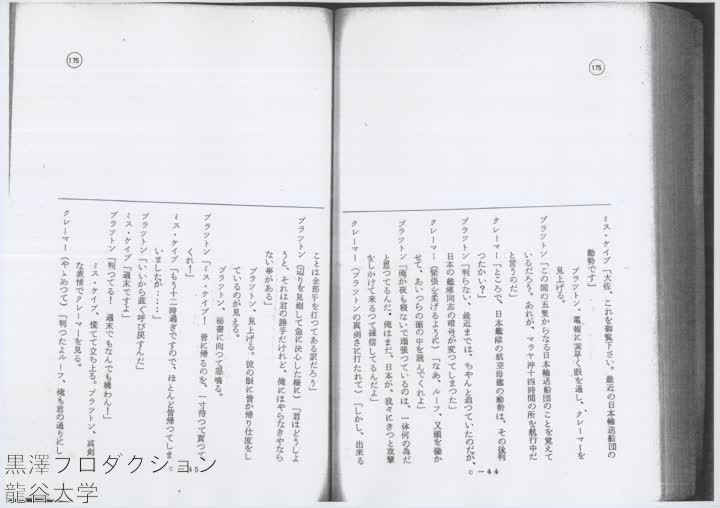 175
ミス・ケイブ「大佐、これを御覧下さい。最近の日本輸送船団の
動勢です」
ブラットン、電報に素早く眼を通し、クレーマーを
見上げる。
ブラットン「この間の五隻からなる日本輸送船団のことを覚えて
いるだろう。あれが、マラヤ沖十四時間の所を航行中だ
と言うのだ」
クレーマー「ところで、日本艦隊の航空母艦の動勢は、その後判
つたかい？」
ブラットン「判らない、最近までは、ちゃんと追つていたのだが、
日本の艦隊同志の暗号が変つてしまつた」
クレーマー（緊張を柔げるように）「なあ、ルーフ、又頭を働か
せて、あいつらの頭の中を読んでくれよ」
ブラットン「俺が夜も寝ないで頑張つているのは、一体何の為だ
と思つてるんだ。俺はまだ、日本が、我々にきつと攻撃
をしかけて来るつて確信してるんだよ」
クレーマー（ブラットンの真剣さに打たれて）「しかし、出来る
C-44
175
ことは全部手を打つてある訳だろう」
ブラットン（辺りを見廻して急に決心した様に）「君はどうしよ
うと、それは君の勝手だけれど、俺にはやらなきやなら
ない事がある」
ブラットン、見上げる。彼の眼に皆が帰り仕度をし
ているのが見える。
ブラットン、秘書に向つて怒鳴る。
ブラットン「ミス・ケイブ！ 皆に帰るのを、一寸待つて貰つて、
くれ！」
ミス・ケイブ「もう十二時過ぎですので、ほとんど皆帰つてしま
いましたが……」
ブラットン「いいから直ぐ呼び戻すんだ」
ミス・ケイブ「週末ですよ」
ブラットン「判つてる！ 週末でもなんでも構わん！」
ミス・ケイブ、慌てて立ち上る。ブラットン、真剣
な表情でクレーマーを見る。
クレーマー（やゝあつて）「判つたよルーフ、俺も君の通りにし
C-45
黒澤プロダクション
龍谷大学